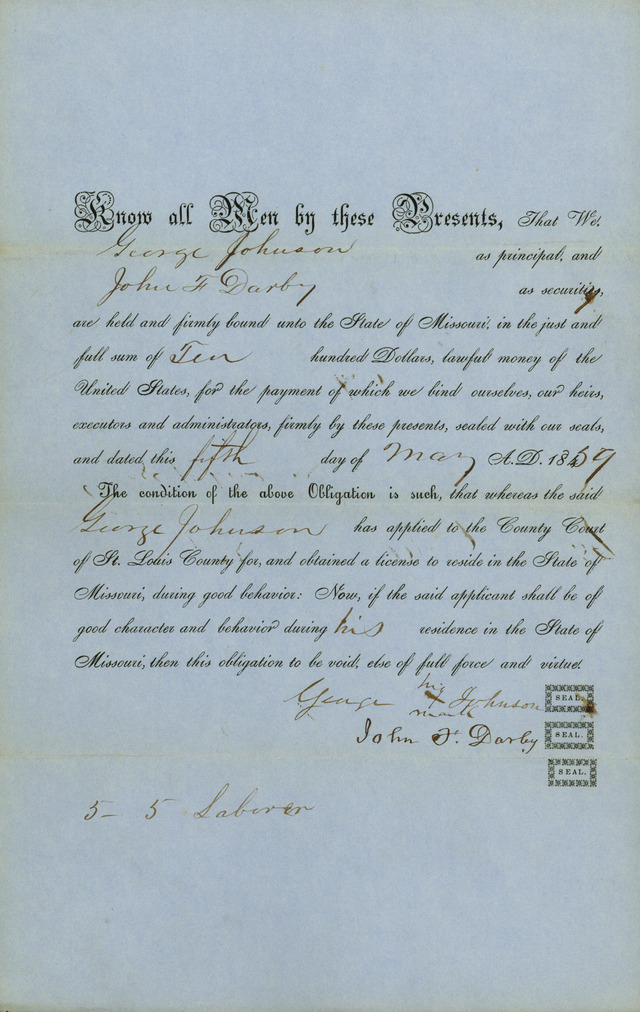 Know all Men by these Presents, That We,
George Johnson as principal, and
John F Darby as security,
are held and firmly bound unto the State of Missouri, in the just and
full sum of Ten hundred Dollars, lawful money of the
United States, for the payment of which we bind ourselves, our heirs,
executors and administrators, firmly by these presents, sealed with our seals,
and dated, this fifth day of May A.D. 1859
The condition of the above Obligation is such, that whereas the said
George Johnson has applied to the County Court
of St. Louis County for, and obtained a license to reside in the State of
Missouri, during good behavior: Now, if the said applicant shall be of
good character and behavior during his residence in the State of
Missouri, then this obligation to be void, else of full force and virtue.
George his X mark Johnson SEAL.
John F. Darby SEAL.
SEAL.
5 - 5 Laborer